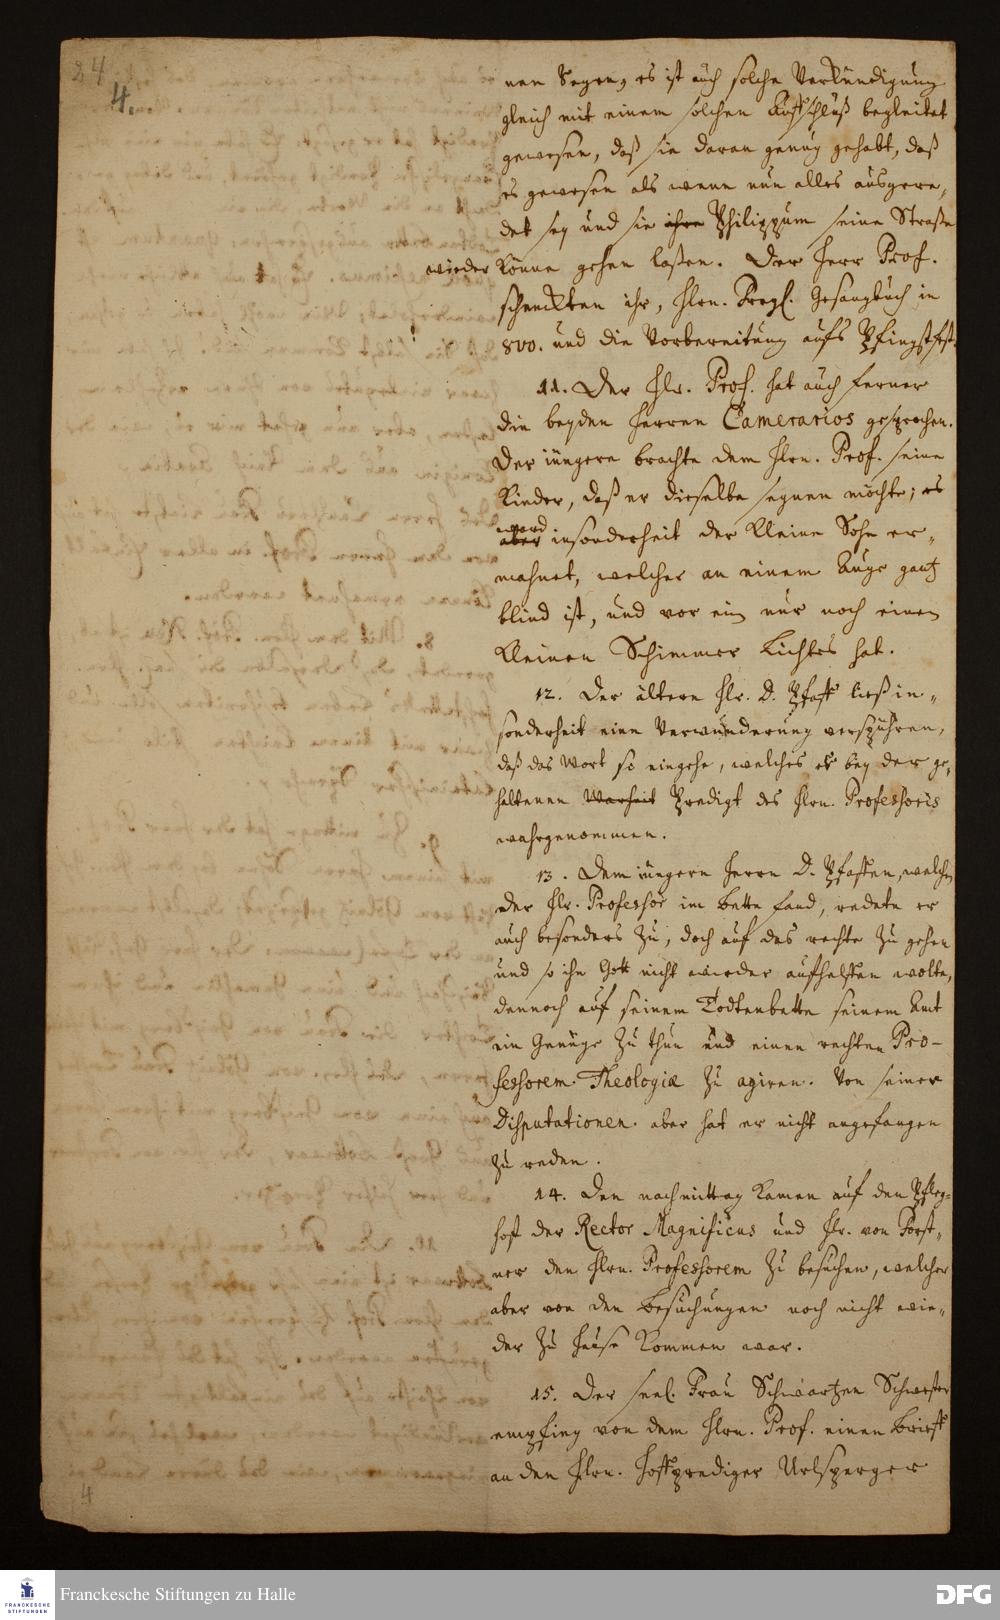 24
4.
nen Segen, es ist auch solche Verkündigung
gleich mit einem solchen begleitet
gewesen, daß sie daran genug gehabt, daß
es gewesen als wenn nun alles ausgere-
det sey und sie ihre Philippum seine Straße
wieder könne gehen laßen. Der Herr Prof.
schenckten ihr, Hrn. Freyl. Gesangbuch in
8vo. und die Vorbereitung aufs Pfingstfest.
11. Der Hr. Prof. hat auch ferner
die beyden Herren Camerarios gesprochen.
Der iüngere brachte dem Hrn. Prof. seine
Kinder, daß er dieselbe segnen möchte; es
ward
aber insonderheit der kleine Sohn er-
mahnet, welcher an einem Auge gantz
blind ist, und vor ein nur noch einen
kleinen Schimmer Lichtes hat.
12. Der ältere Hr. D. Pfaff ließ in-
sonderheit eine Verwunderung verspühren,
daß das Wort so eingehe, welches er bey der ge-
haltenen Warheit Predigt des Hrn. Professoris
wahrgenommen.
13. Dem iüngern Herrn D. Pfaffen, welchen
der Hr. Professor im Bette fand, redete er
auch besonders zu, doch auf das rechte zu gehen
und so ihn Gott nicht wieder aufhelffen wolte,
dennoch auf seinem Todtenbette seinem Amt
ein Genüge zu thun und einen rechten Pro-
fessorem Theologiæ zu agiren. Von seinen
Disputationen aber hat er nicht angefangen
zu reden.
14. Den nachmittag kamen auf den Pfleg-
hoff der Rector Magnificus und Hr. von Forst-
ner den Hrn. Professorem zu besuchen, welcher
aber von den Besuchungen noch nicht wie-
der zu Hause kommen war.
15. Der seel. Frau Schwartzen Schwester
empfing von dem Hrn. Prof. einen Brieff
an den Hrn. Hoffprediger Urlsperger
4
FRANCKESCHE
STIFTUNGEN
Franckesche Stiftungen zu Halle
DFG